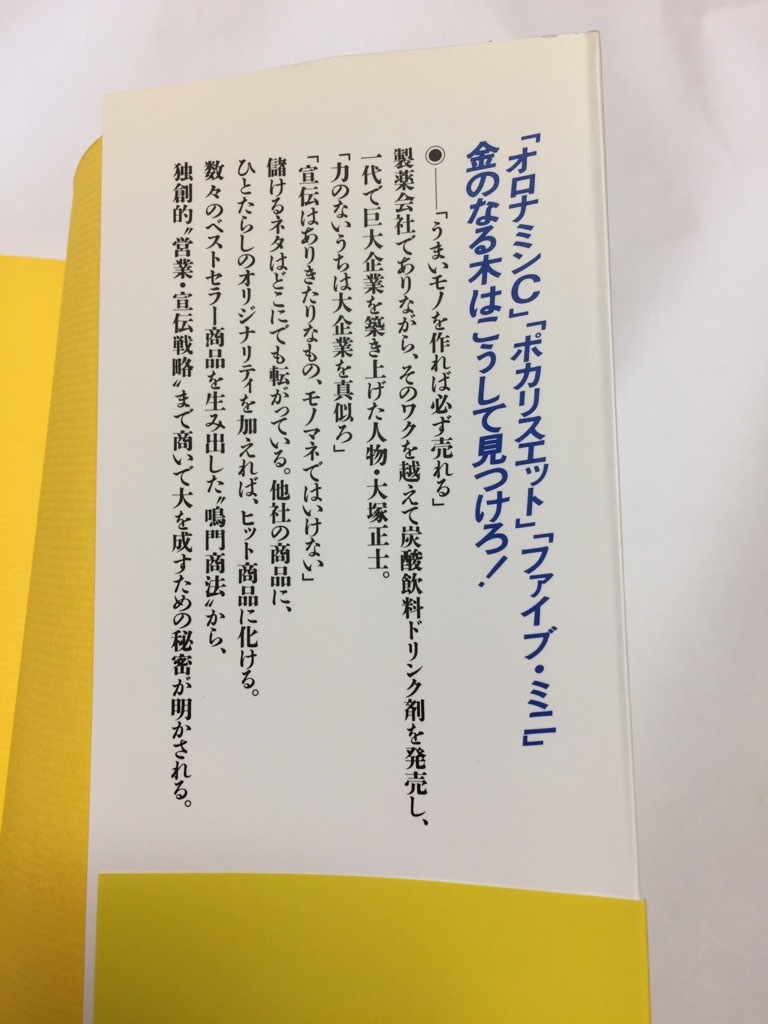 「オロナミンC」「ポカリスエット」「ファイブ・ミニ」
金のなる木はこうして見つけろ！
◉――「うまいモノを作れば必ず売れる」
製薬会社でありながら、そのワクを越えて炭酸飲料ドリンク剤を発売し、
一代で巨大企業を築き上げた人物・大塚正士。
「力のないうちは大企業を真似ろ」
「宣伝はありきたりなもの、モノマネではいけない」
儲けるネタはどこにでも転がっている。他社の商品に、
ひとたらしのオリジナリティを加えれば、ヒット商品に化ける。
数々のベストセラー商品を生み出した〝鳴門商法〟から、
独創的〝営業・宣伝戦略〟まで商いで大を成すための秘密が明かされる。